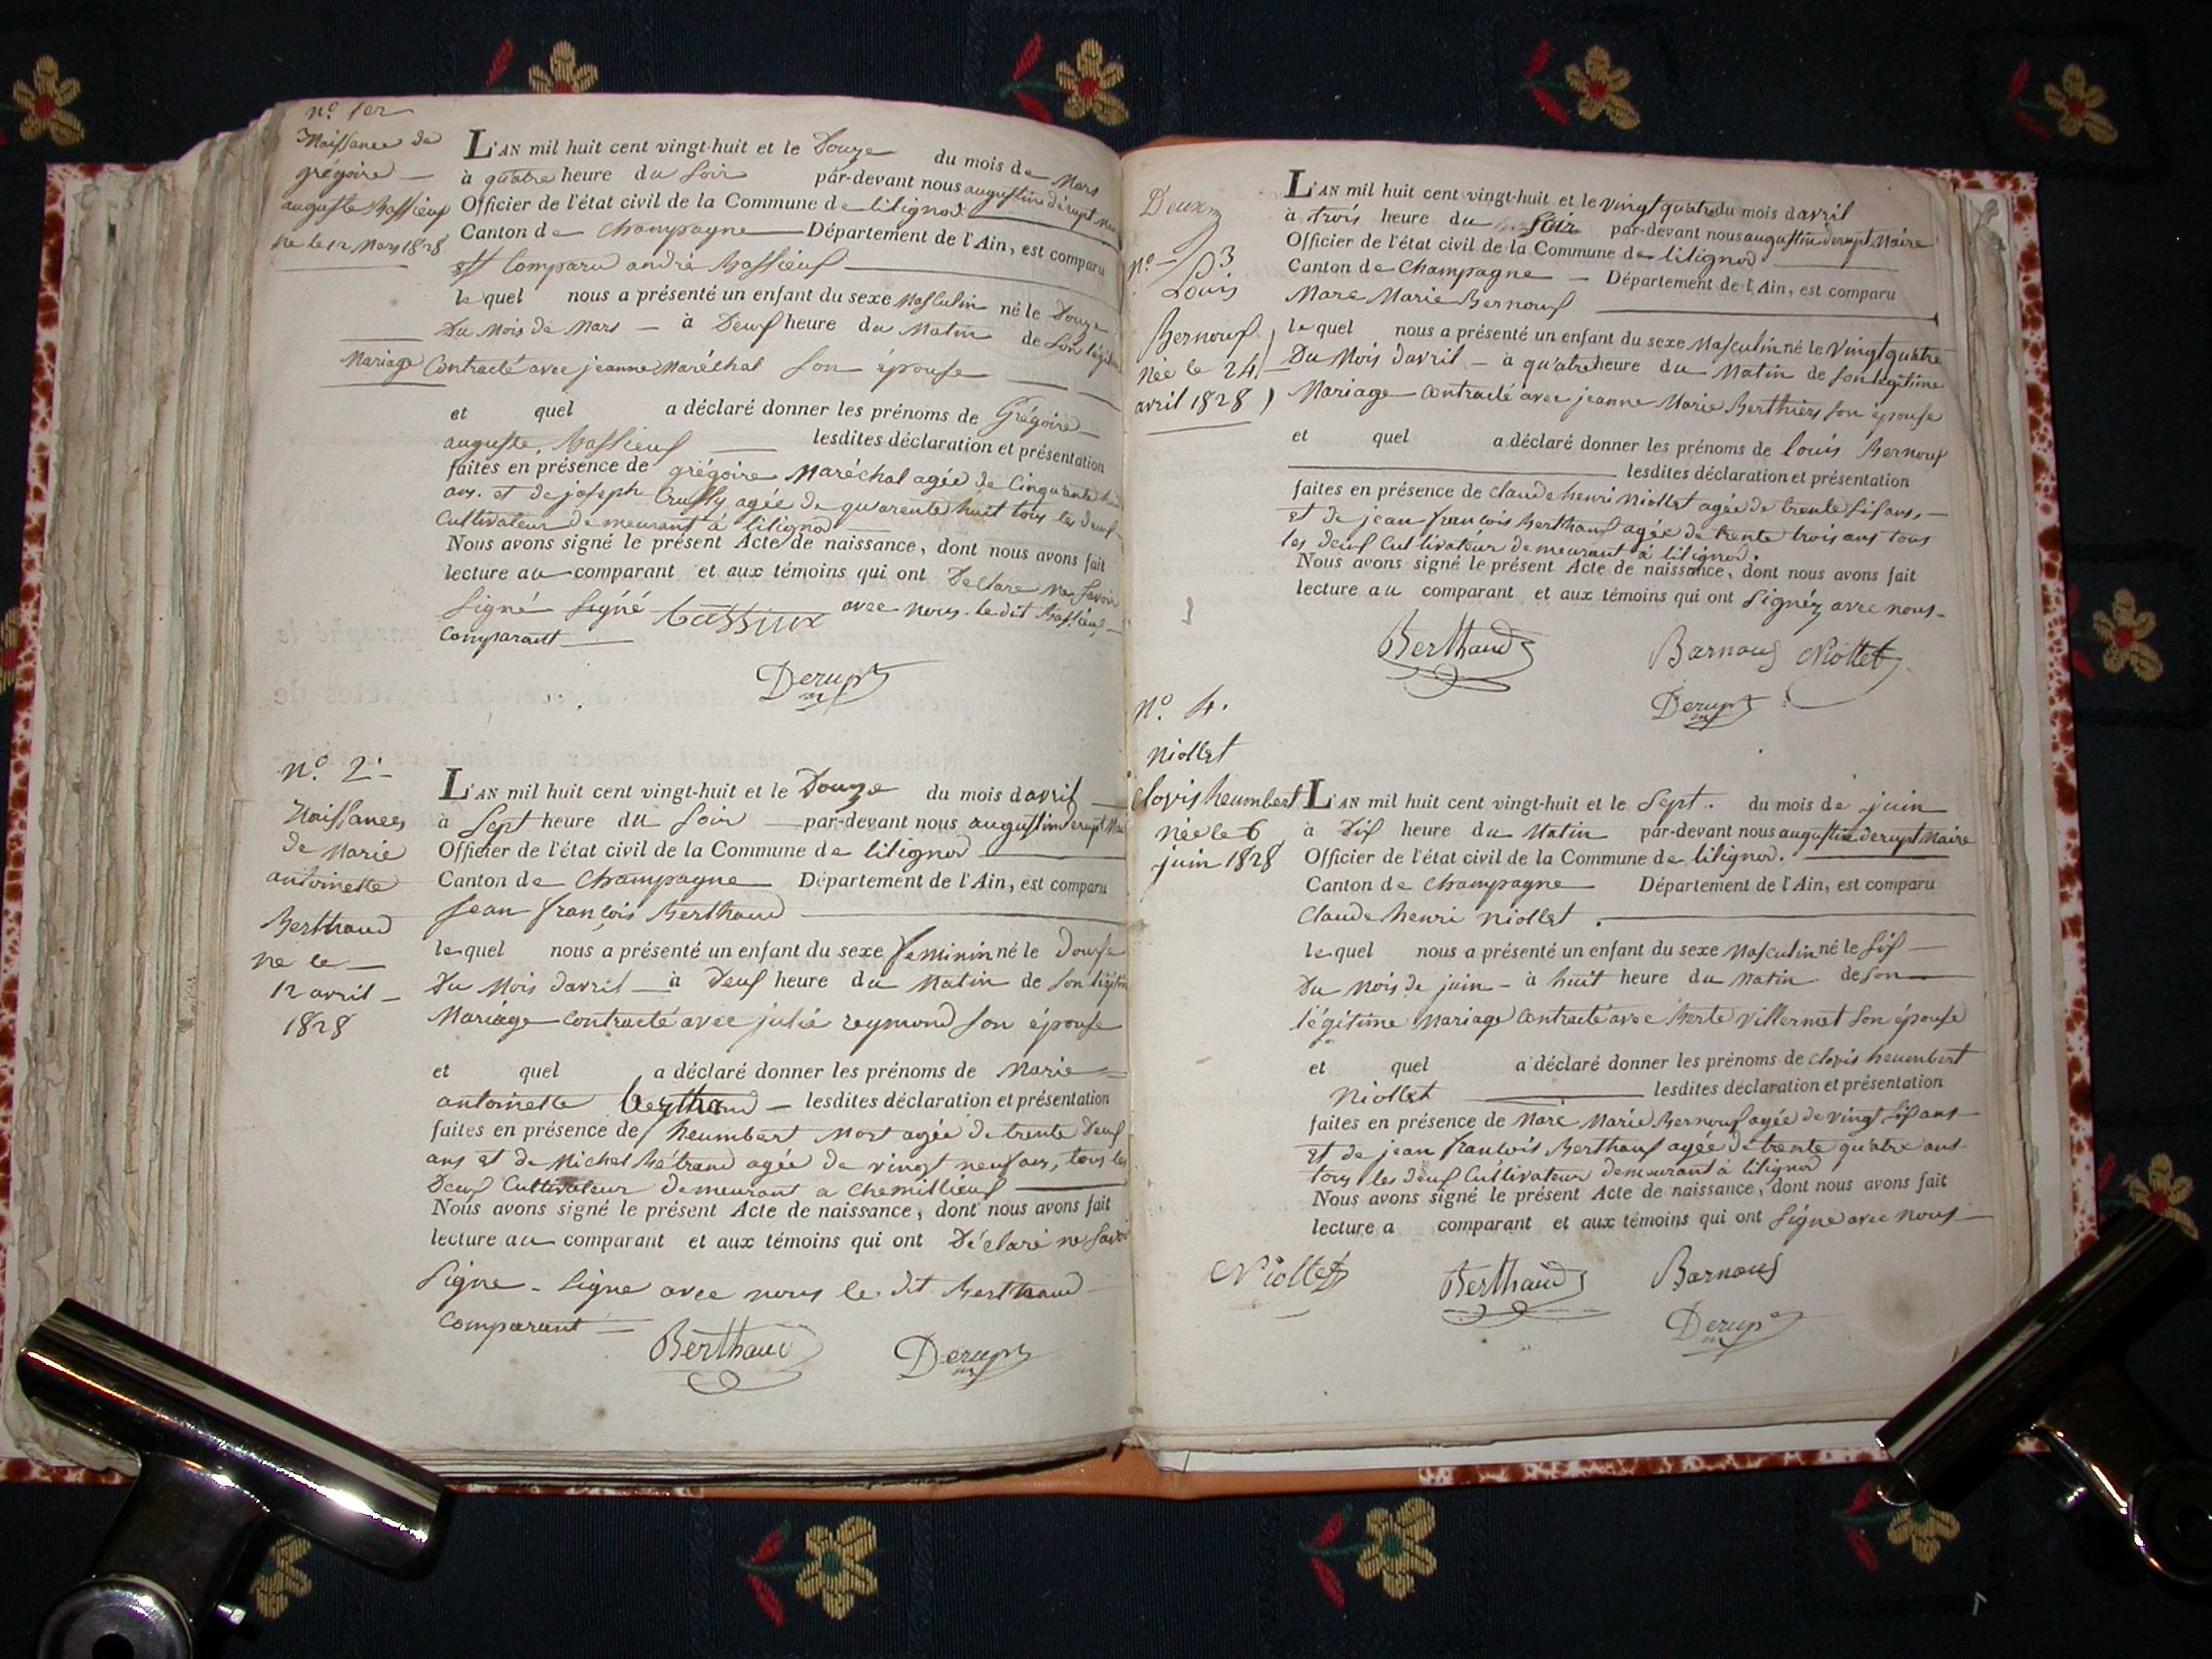 n.º 1er
Naissance de
grégoire
auguste Bassieux
né le 12 Mars 1828
L'AN mil huit cent vingt-huit et le Douze du mois de Mars
à quatre heure du Soir par-devant nous augustin derupt
Officier de l'état civil de la Commune de lilignod
Canton de Champagne Département de l'Ain, est comparu
est Comparu andré Bassieux
le quel nous a présenté un enfant du sexe Masculin né le Douze
Du Mois de Mars à Deux heure du Matin de son légitime
Mariage Contracté avec jeanne Maréchal son épouse
et quel a déclaré donner les prénoms de Grégoire
auguste, Bassieux lesdites déclaration et présentation
faites en présence de grégoire Maréchal agée de Cinquante
ans. et de joseph agée de quarente huit tous les deux
Cultivateur demeurant à lilignod
Nous avons signé le présent Acte de naissance, dont nous avons fait
lecture au comparant et aux témoins qui ont Declare ne savoir
signé signé bassiux avec nous. le dit Bassieux
Comparant
Derupt
n.º 2.
Naissances
de Marie
antoinette
Berthaud
né le
12 avril
1828
L'AN mil huit cent vingt-huit et le Douze du mois d avril
à Sept heure du Soir par-devant nous augustin derupt
Officier de l'état civil de la Commune de lilignod
Canton de Champagne Département de l'Ain, est comparu
jean françois Berthaud
le quel nous a présenté un enfant du sexe feminin né le Douse
Du Mois davril à Deux heure du Matin de son légitime
Mariage Contracté avec julie reymond son épouse
et quel a déclaré donner les prénoms de Marie
antoinette berthaud lesdites déclaration et présentation
faites en présence de heumbert Mort agée de trente Deux
ans et de Michel Bétrand agée de vingt neuf ans, tous les
Deux Cultivateur demeurant a Chemillieux
Nous avons signé le présent Acte de naissance, dont nous avons fait
lecture au comparant et aux témoins qui ont Déclaré ne savoir
signe - signe avec nous le dit Berthaud
Comparant
Berthaud Derupt
Deux
n.º 3
Louis
Bernoux
née le 24
avril 1828
L'AN mil huit cent vingt-huit et le vingt quatre du mois d avril
à trois heure du Soir par-devant nous augustin derupt Maire
Officier de l'état civil de la Commune de lilignod
Canton de Champagne Département de l'Ain, est comparu
Marc Marie Bernoux
le quel nous a présenté un enfant du sexe Masculin né le vingt quatre
Du Mois davril à qu'atre heure du Matin de son légitime
Mariage Contracté avec jeanne Marie Berthier son épouse
et quel a déclaré donner les prénoms de louis Bernoux
lesdites déclaration et présentation
faites en présence de Claude henri Niollet agée de trente six ans,
et de jean françois Berthaux agée de trente trois ans tous
les deux Cultivateur demeurant à lilignod.
Nous avons signé le présent Acte de naissance, dont nous avons fait
lecture au comparant et aux témoins qui ont signéz avec nous
Berthaud Barnoux Niollet
Derupt
n.º 4.
Niollet
Clovis heumbert
née le 6
juin 1828
L'AN mil huit cent vingt-huit et le Sept. du mois de juin
à Dix heure du Matin par-devant nous augustin derupt Maire
Officier de l'état civil de la Commune de lilignod.
Canton de Champagne Département de l'Ain, est comparu
Claude henri Niollet
le quel nous a présenté un enfant du sexe Masculin né le six
Du Mois de juin - à huit heure du Matin de son
légitime Mariage Contracté avec Berte Villermet son épouse
et quel a déclaré donner les prénoms de Clovis heumbert
Niollet lesdites déclaration et présentation
faites en présence de Marc Marie Bernoux agée de vingt six ans
et de jean francois Berthaux agée de trente qu'atre ans
tous les deux Cultivateur demeurant à lilignod
Nous avons signé le présent Acte de naissance, dont nous avons fait
lecture a comparant et aux témoins qui ont signe avec nous
Niollet Berthaud Barnoux
Derupt